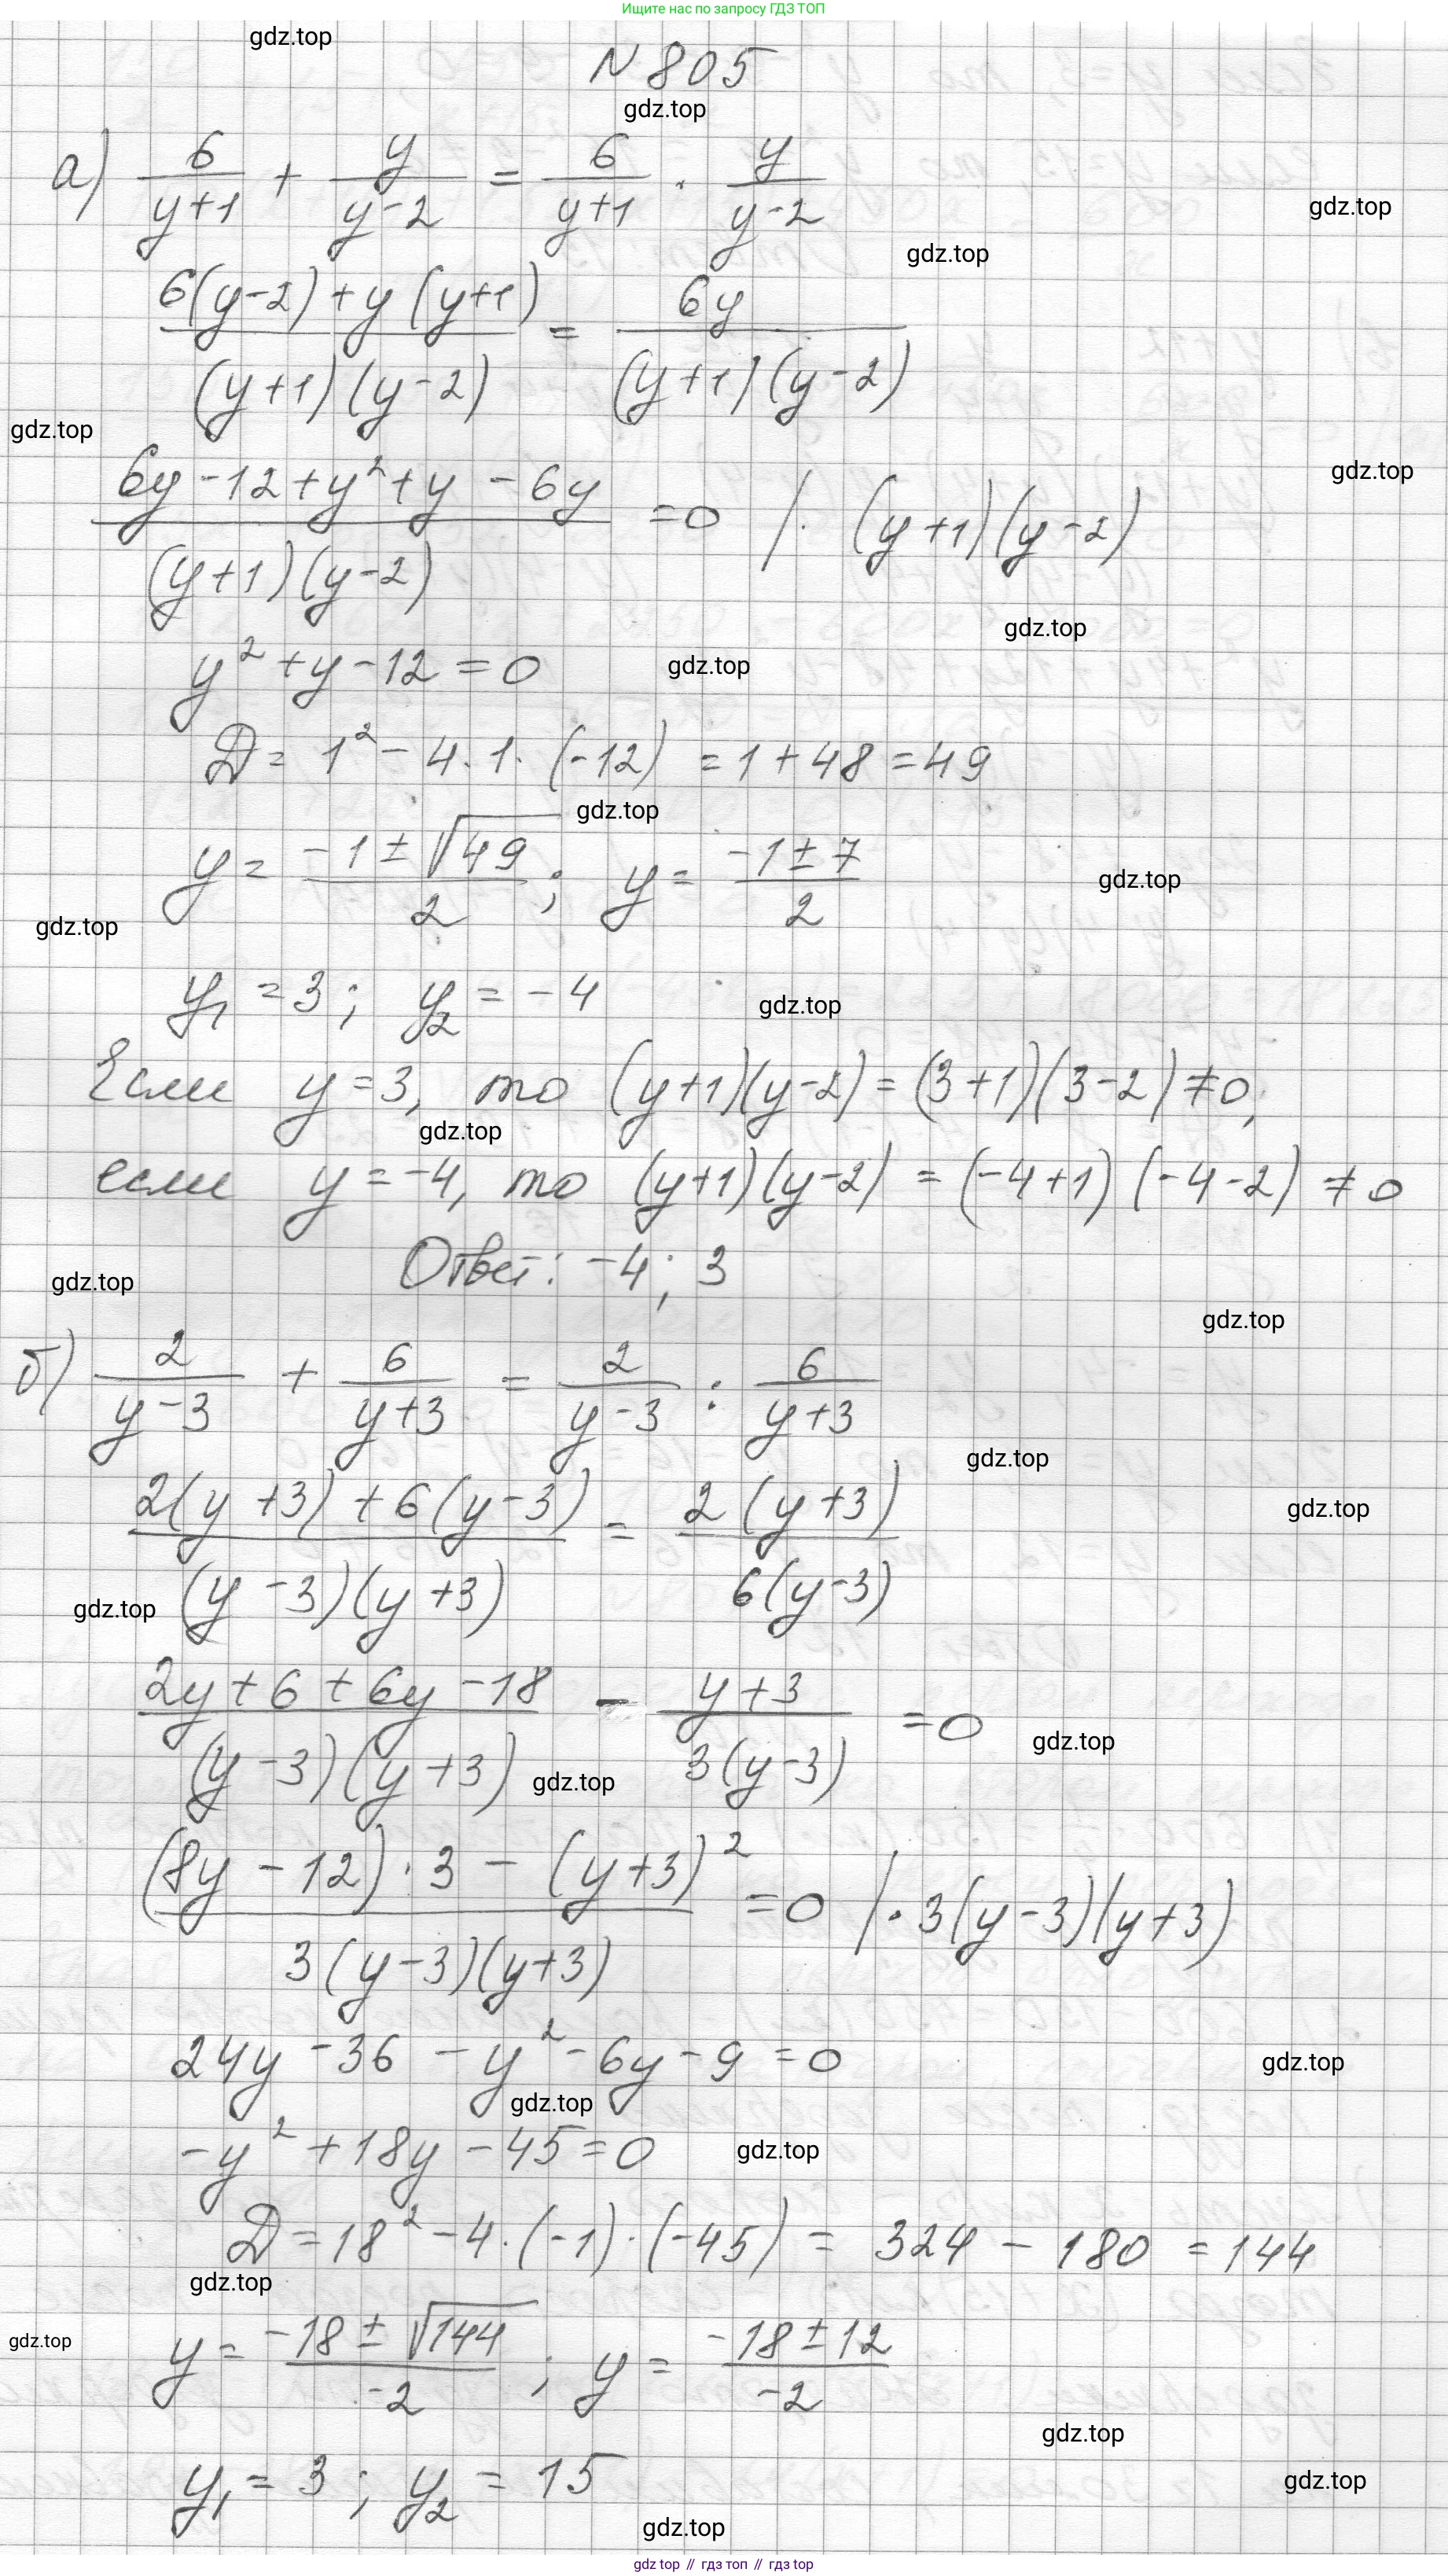 Ищите нас по запросу ГДЗ ТОП
gdz.top
N 805
gdz.top
а) 6/(y+1) + y/(y-2) = 6/(y+1) · y/(y-2)
gdz.top
gdz.top
(6(y-2)+y(y+1))/((y+1)(y-2)) = 6y/((y+1)(y-2))
gdz.top
gdz.top
(6y-12+y²+y-6y)/((y+1)(y-2)) =0 /· (y+1)(y-2)
gdz.top
y²+y-12=0 gdz.top
D= 1²-4·1·(-12) =1+48=49
gdz.top
y= (-1±√49)/2; y= (-1±7)/2
gdz.top
gdz.top
y₁=3; y₂=-4 gdz.top
Если y=3, то (y+1)(y-2)=(3+1)(3-2)≠0,
gdz.top
если y=-4, то (y+1)(y-2)=(-4+1)(-4-2)≠0
Ответ: -4; 3
gdz.top
gdz.top
б) 2/(y-3) + 6/(y+3) = 2/(y-3) : 6/(y+3)
gdz.top
(2(y+3)+6(y-3))/((y-3)(y+3)) = 2(y+3)/(6(y-3))
gdz.top
gdz.top
(2y+6+6y-18)/((y-3)(y+3)) - (y+3)/(3(y-3)) =0
gdz.top
gdz.top
((8y-12)·3-(y+3)²)/(3(y-3)(y+3)) =0 /·3(y-3)(y+3)
24y-36-y²-6y-9=0
gdz.top
gdz.top
-y²+18y-45=0 gdz.top
D=18²-4·(-1)·(-45)= 324-180=144
gdz.top
gdz.top
y= (-18±√144)/-2; y= (-18±12)/-2
gdz.top
y₁=3; y₂=15
gdz.top
gdz.top
gdz top // гдз топ // gdz top